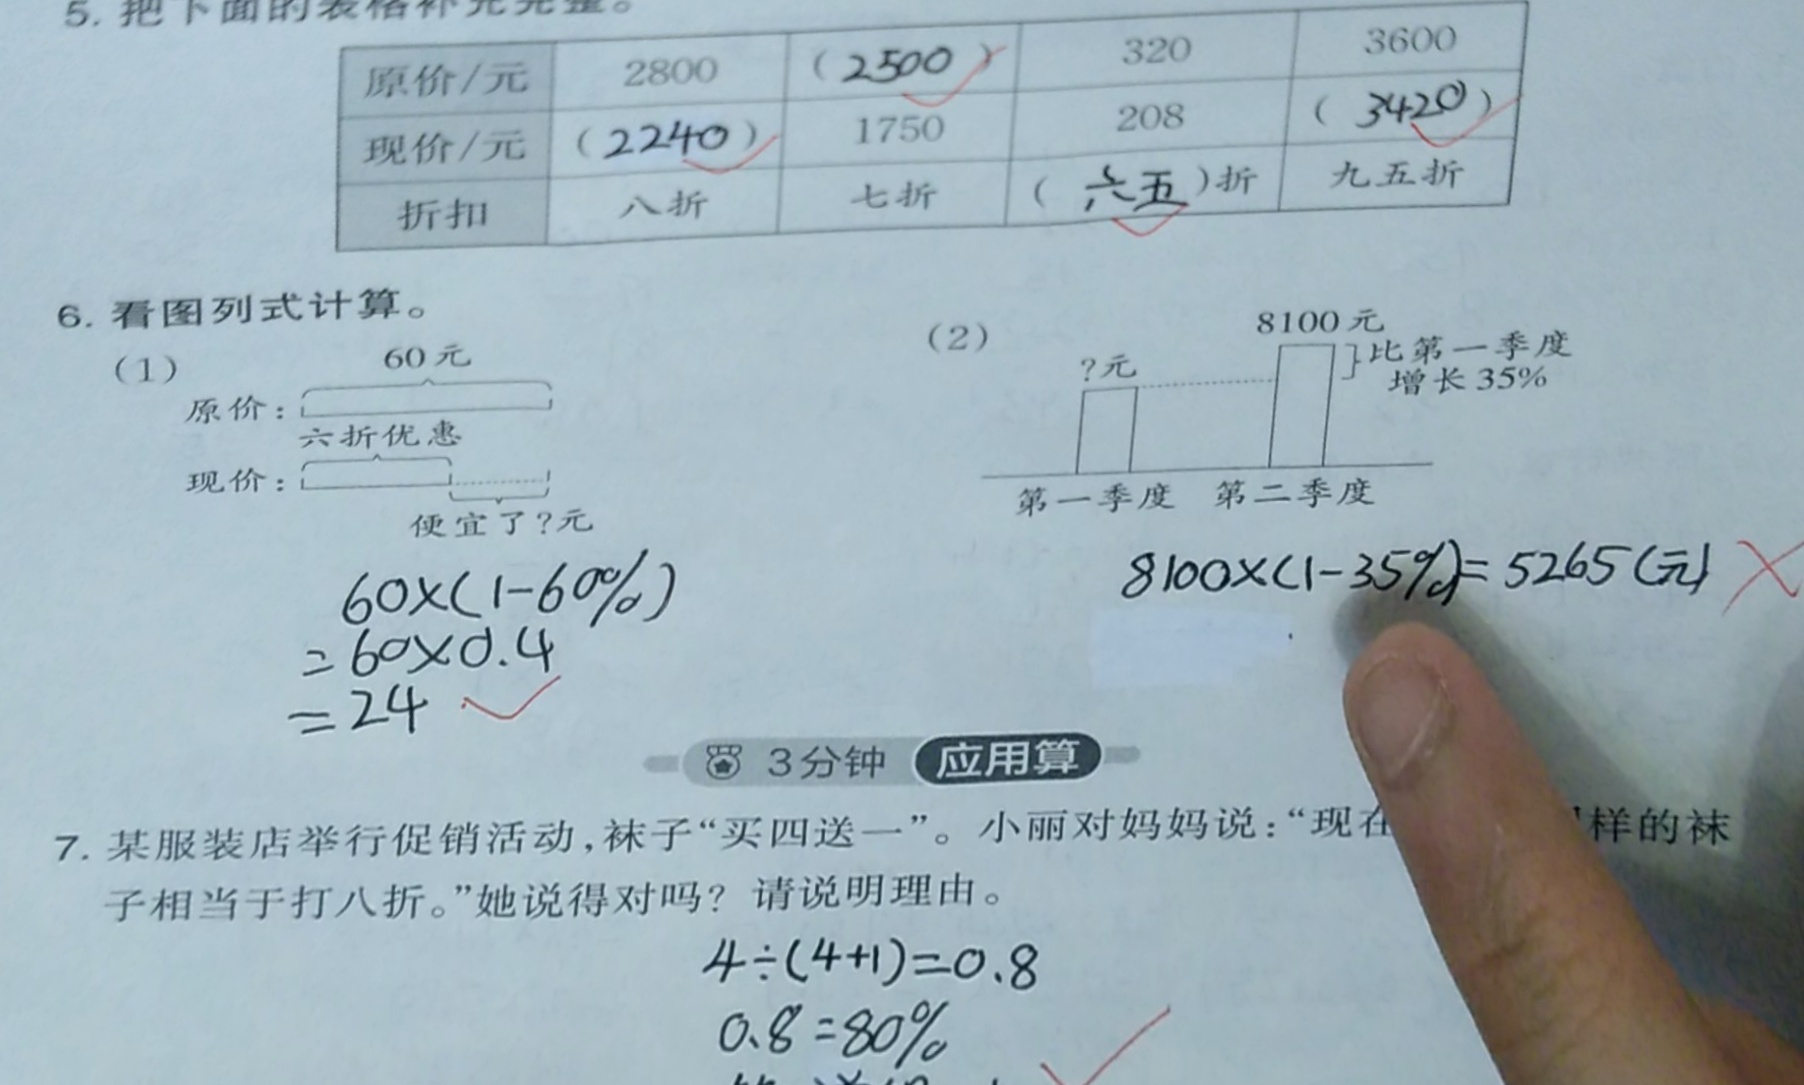 5. 把下面的表格补充完整。
原价/元 2800 (2500) 320 3600
现价/元 (2240) 1750 208 (3420)
折扣 八折 七折 (六五)折 九五折
6. 看图列式计算。
(1)
60元
原价:
六折优惠
现价:
便宜了?元
60×(1-60%)
=60×0.4
=24
(2)
8100元
?元
比第一季度
增长35%
第一季度 第二季度
8100×(1-35%)=5265(元)
3分钟 应用算
7. 某服装店举行促销活动,袜子“买四送一”。小丽对妈妈说:“现在 样的袜
子相当于打八折。”她说得对吗?请说明理由。
4÷(4+1)=0.8
0.8=80%